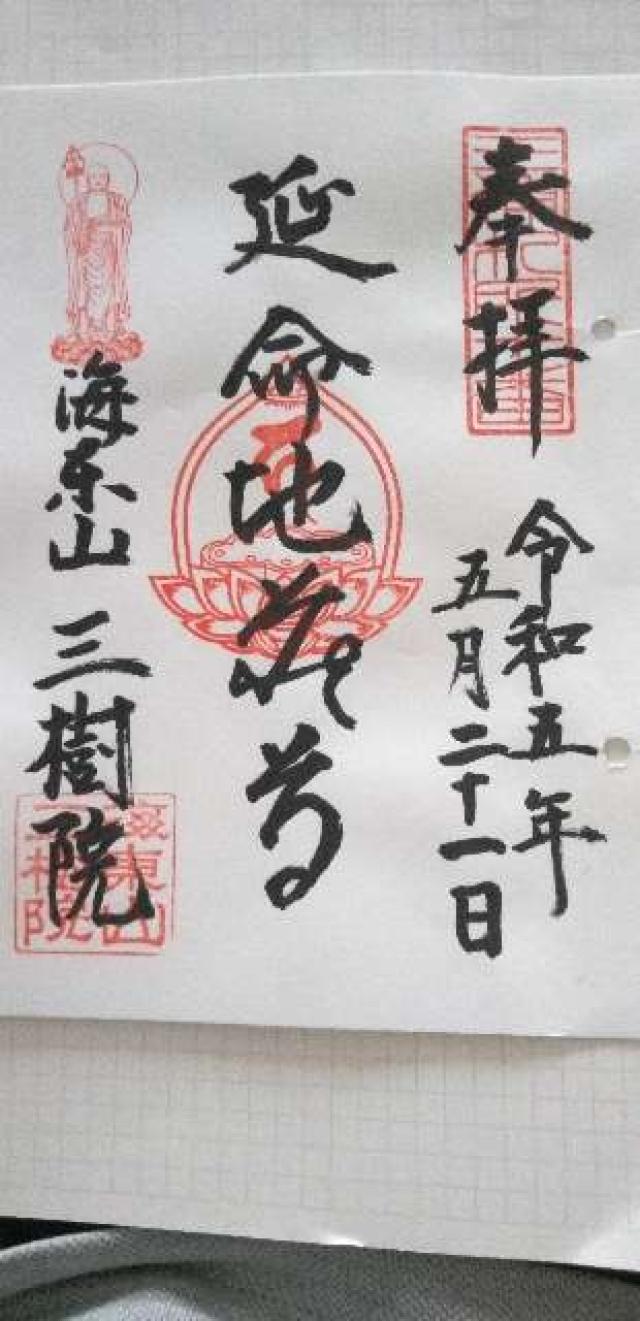 奉拝
令和五年
五月二十一日
延命地蔵尊
海東山 三樹院
海東山
三樹院